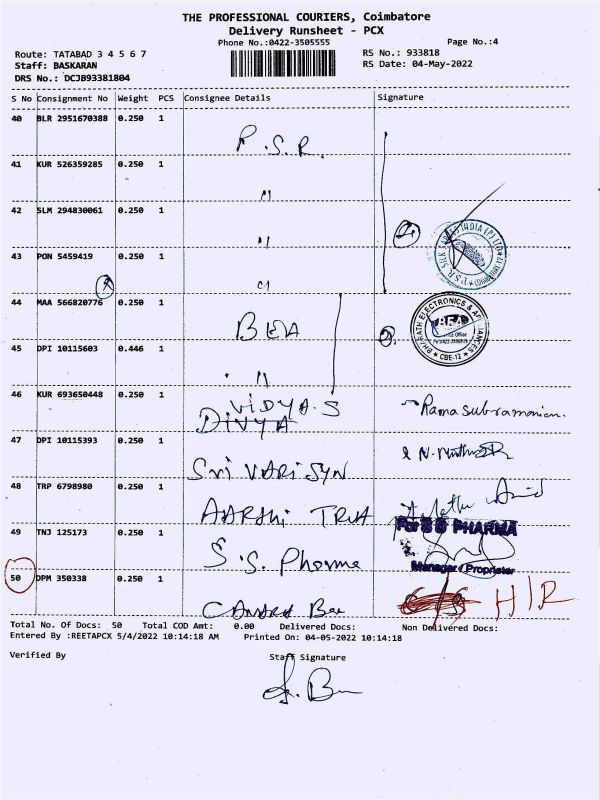 THE PROFESSIONAL COURIERS, Coimbatore
Delivery Runsheet - PCX
Phone No.:0422-3505555 Page No.:4
Route: TATABAD 3 4 5 6 7 RS No.: 933818
Staff: BASKARAN RS Date: 04-May-2022
DRS No.: DCJB93381804
S No Consignment No Weight PCS Consignee Details Signature
40 BLR 2951670388 0.250 1 P.S.R.
41 KUR 526359285 0.250 1 "
42 SLM 294830061 0.250 1 "
P S R SILK INDIA (P) LTD
43 PON 5459419 0.250 1 "
44 MAA 566820776 0.250 1 BEA
BHARATH ELECTRONICS & APPLIANCES
BEA
* CBE-12 *
45 DPI 10115603 0.446 1 "
46 KUR 693650448 0.250 1 VIDYA.S Ramasubramanian.
DIVYA
47 DPI 10115393 0.250 1 Sri VARI SYN
48 TRP 6798980 0.250 1 AARSHI
For S S PHARMA
49 TNJ 125173 0.250 1 S.S. Pharma
Manager / Proprietor
50 DPM 350338 0.250 1 CANARA H/R
Total No. Of Docs: 50 Total COD Amt: 0.00 Delivered Docs: Non Delivered Docs:
Entered By :REETAPCX 5/4/2022 10:14:18 AM Printed On: 04-05-2022 10:14:18
Verified By Staff Signature